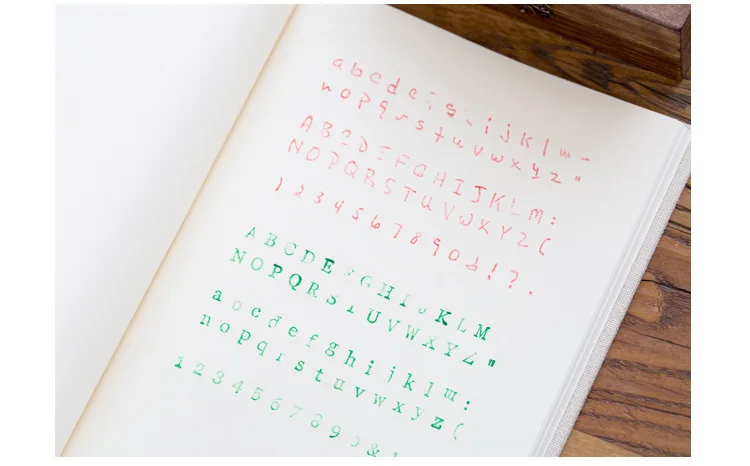 a b c d e f g i j k l m -
n o p q r s t u v w x y z "
A B C D E F G H I J K L M :
N O P Q R S T U V W X Y Z (
1 2 3 4 5 6 7 8 9 0 & ! ? .
A B C D E F G H I J K L M
N O P Q R S T U V W X Y Z "
a o c d e f g h i j k l m :
n o p q r s t u v w x y z (
1 2 3 4 5 6 7 8 9 0 & !